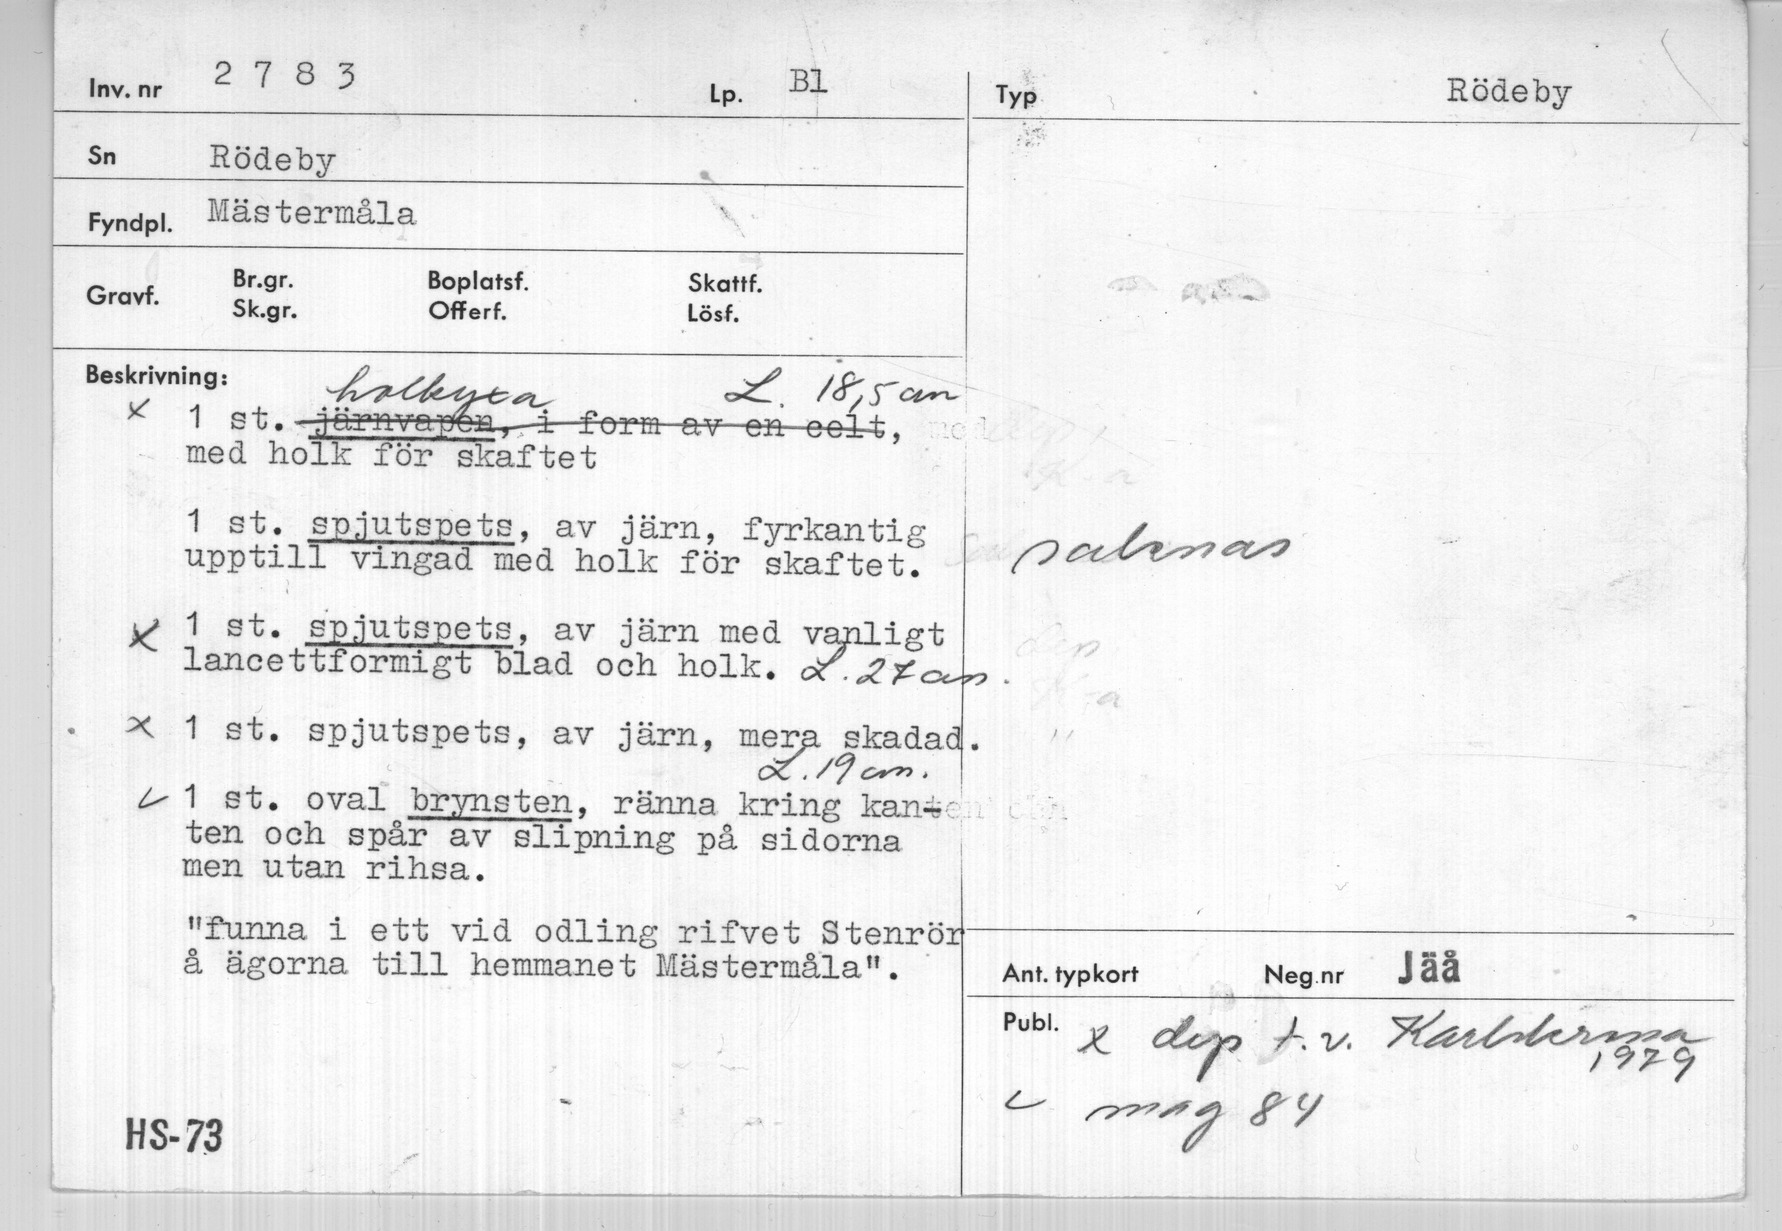 Inv. nr 2 7 8 3 Lp. Bl
Sn Rödeby
Fyndpl. Mästermåla
Gravf. Br.gr. Boplatsf. Skattf.
Sk.gr. Offerf. Lösf.
Beskrivning:
holkyxa L. 18,5 cm
x 1 st. järnvapen, i form av en celt,
med holk för skaftet
1 st. spjutspets, av järn, fyrkantig
upptill vingad med holk för skaftet.
x 1 st. spjutspets, av järn med vanligt
lancettformigt blad och holk. L. 27 cm.
x 1 st. spjutspets, av järn, mera skadad.
L. 19 cm.
1 st. oval brynsten, ränna kring kan-
ten och spår av slipning på sidorna
men utan rihsa.
"funna i ett vid odling rifvet Stenrör
å ägorna till hemmanet Mästermåla".
HS-73
Typ Rödeby
saknas
Ant. typkort Neg.nr Jäå
Publ. x dep t.v. Karlskrona
1979
mag 84